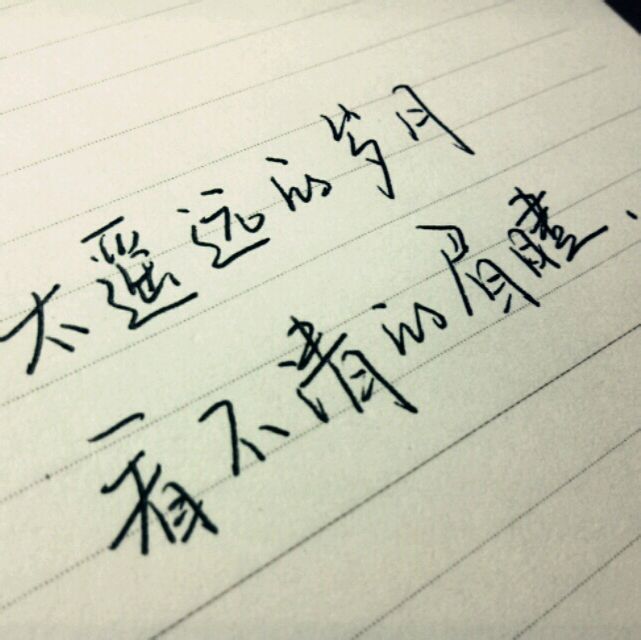 太遥远的岁月
看不清的眉瞳、